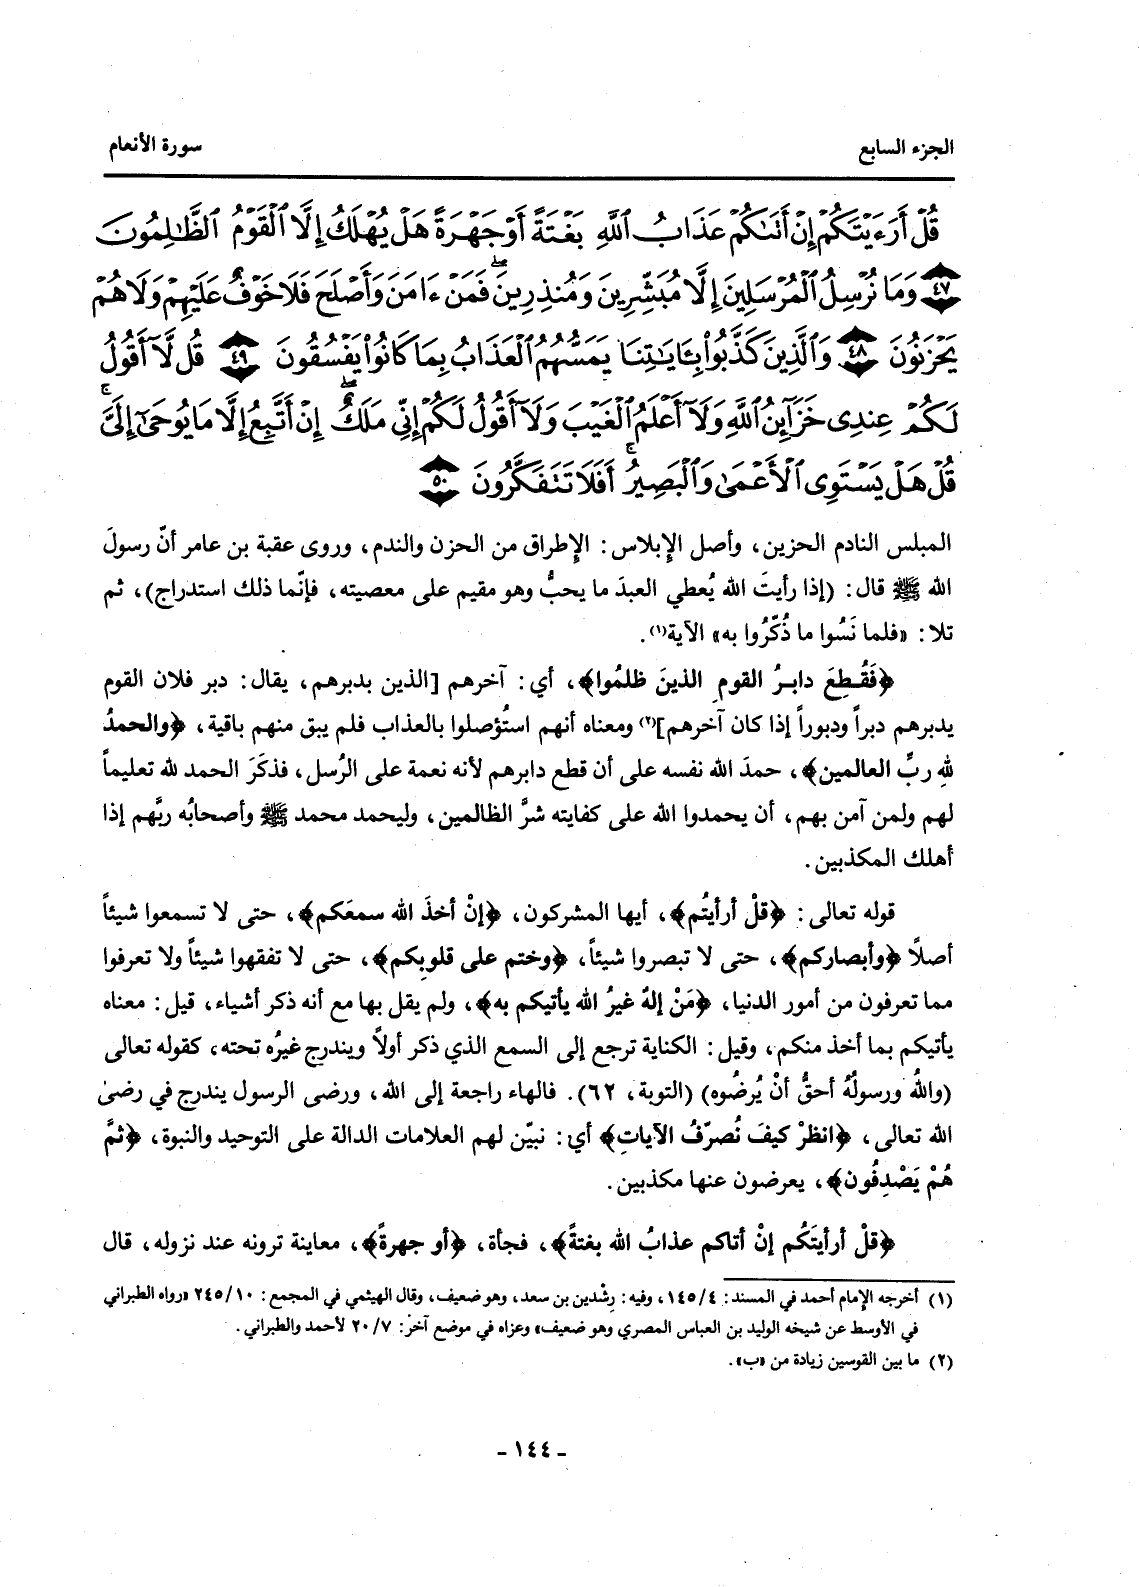 الجزء السابع
سورة الأنعام
قُلْ أَرَءَيْتَكُمْ إِنْ أَتَىٰكُمْ عَذَابُ ٱللَّهِ بَغْتَةً أَوْ جَهْرَةً هَلْ يُهْلَكُ إِلَّا ٱلْقَوْمُ ٱلظَّٰلِمُونَ
﴿٤٧﴾ وَمَا نُرْسِلُ ٱلْمُرْسَلِينَ إِلَّا مُبَشِّرِينَ وَمُنذِرِينَۖ فَمَنْ ءَامَنَ وَأَصْلَحَ فَلَا خَوْفٌ عَلَيْهِمْ وَلَا هُمْ
يَحْزَنُونَ ﴿٤٨﴾ وَٱلَّذِينَ كَذَّبُوا۟ بِـَٔايَٰتِنَا يَمَسُّهُمُ ٱلْعَذَابُ بِمَا كَانُوا۟ يَفْسُقُونَ ﴿٤٩﴾ قُل لَّآ أَقُولُ
لَكُمْ عِندِى خَزَآئِنُ ٱللَّهِ وَلَآ أَعْلَمُ ٱلْغَيْبَ وَلَآ أَقُولُ لَكُمْ إِنِّى مَلَكٌۖ إِنْ أَتَّبِعُ إِلَّا مَا يُوحَىٰٓ إِلَىَّۚ
قُلْ هَلْ يَسْتَوِى ٱلْأَعْمَىٰ وَٱلْبَصِيرُۚ أَفَلَا تَتَفَكَّرُونَ ﴿٥٠﴾
المبلس النادم الحزين، وأصل الإبلاس: الإطراق من الحزن والندم، وروى عقبة بن عامر أنّ رسولَ
الله ﷺ قال: (إذا رأيتَ الله يُعطي العبدَ ما يحبُّ وهو مقيم على معصيته، فإنّما ذلك استدراج)، ثم
تلا: «فلما نَسُوا ما ذُكّرُوا به» الآية(١).
﴿فَقُطِعَ دابرُ القومِ الذينَ ظلمُوا﴾، أي: آخرهم [الذين بدبرهم، يقال: دبر فلان القوم
يدبرهم دبراً ودبوراً إذا كان آخرهم](٢) ومعناه أنهم استُؤصلوا بالعذاب فلم يبق منهم باقية، ﴿والحمدُ
للهِ ربِّ العالمين﴾، حمدَ الله نفسه على أن قطع دابرهم لأنه نعمة على الرُسل، فذكَرَ الحمد لله تعليماً
لهم ولمن آمن بهم، أن يحمدوا الله على كفايته شرَّ الظالمين، وليحمد محمد ﷺ وأصحابُه ربَّهم إذا
أهلك المكذبين.
قوله تعالى: ﴿قلْ أرأيتُم﴾، أيها المشركون، ﴿إنْ أخذَ الله سمعَكم﴾، حتى لا تسمعوا شيئاً
أصلًا ﴿وأبصاركم﴾، حتى لا تبصروا شيئاً، ﴿وختم على قلوبِكم﴾، حتى لا تفقهوا شيئاً ولا تعرفوا
مما تعرفون من أمور الدنيا، ﴿مَنْ إلهٌ غيرُ الله يأتيكم به﴾، ولم يقل بها مع أنه ذكر أشياء، قيل: معناه
يأتيكم بما أخذ منكم، وقيل: الكناية ترجع إلى السمع الذي ذكر أولاً ويندرج غيرُه تحته، كقوله تعالى
(واللهُ ورسولُهُ أحقُّ أنْ يُرضُوه) (التوبة، ٦٢). فالهاء راجعة إلى الله، ورضى الرسول يندرج في رضىٰ
الله تعالى، ﴿انظرْ كيفَ نُصرّفُ الآياتِ﴾ أي: نبيّن لهم العلامات الدالة على التوحيد والنبوة، ﴿ثمَّ
هُمْ يَصْدِفُون﴾، يعرضون عنها مكذبين.
﴿قلْ أرأيتَكُم إنْ أتاكم عذابُ الله بغتةً﴾، فجأة، ﴿أو جهرةً﴾، معاينة ترونه عند نزوله، قال
(١) أخرجه الإمام أحمد في المسند: ١٤٥/٤، وفيه: رِشْدين بن سعد، وهو ضعيف، وقال الهيثمي في المجمع: ٢٤٥/١٠ «رواه الطبراني
في الأوسط عن شيخه الوليد بن العباس المصري وهو ضعيف» وعزاه في موضع آخر: ٢٠/٧ لأحمد والطبراني.
(٢) ما بين القوسين زيادة من «ب».
- ١٤٤ -